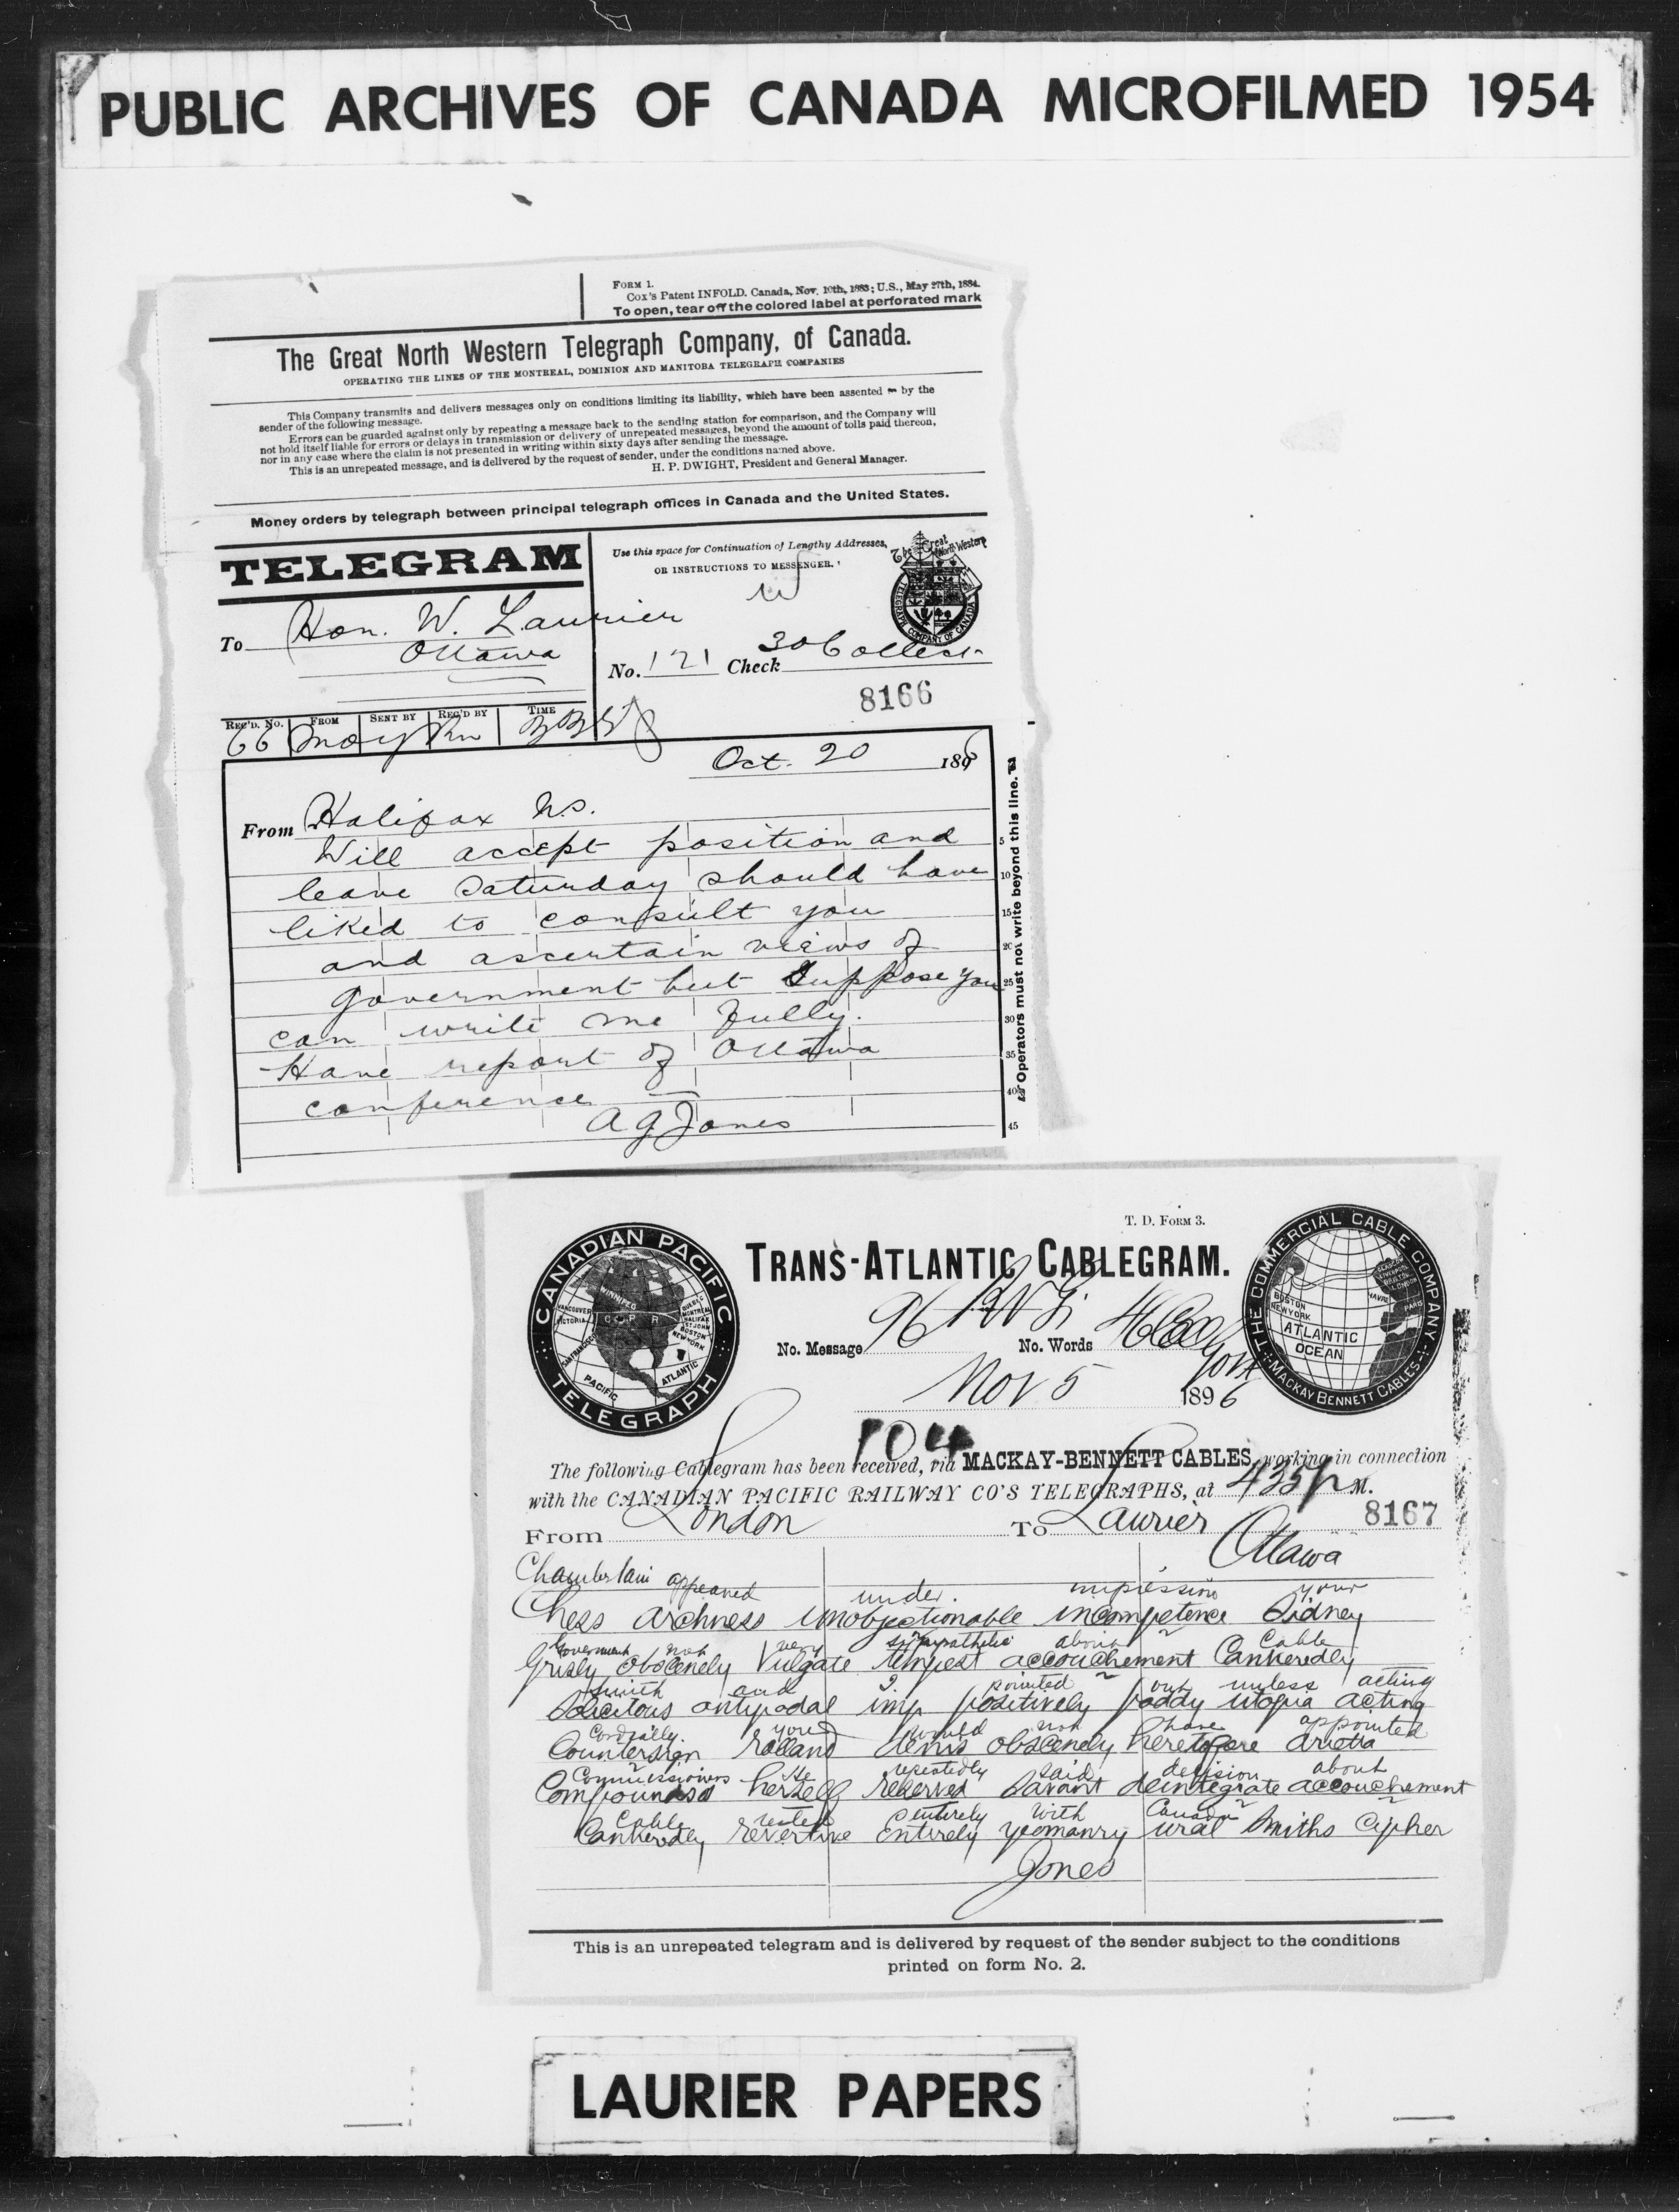 PUBLIC ARCHIVES OF CANADA MICROFILMED 1954
FORM 1.
Cox's Patent INFOLD. Canada, Nov. 10th, 1883; U.S., May 27th, 1884.
To open, tear off the colored label at perforated mark
The Great North Western Telegraph Company, of Canada.
OPERATING THE LINES OF THE MONTREAL, DOMINION AND MANITOBA TELEGRAPH COMPANIES
This Company transmits and delivers messages only on conditions limiting its liability, which have been assented to by the
sender of the following message.
Errors can be guarded against only by repeating a message back to the sending station for comparison, and the Company will
not hold itself liable for errors or delays in transmission or delivery of unrepeated messages, beyond the amount of tolls paid thereon,
nor in any case where the claim is not presented in writing within sixty days after sending the message.
This is an unrepeated message, and is delivered by the request of sender, under the conditions named above.
H. P. DWIGHT, President and General Manager.
Money orders by telegraph between principal telegraph offices in Canada and the United States.
TELEGRAM
Use this space for Continuation of Lengthy Addresses,
OR INSTRUCTIONS TO MESSENGER.
The Great North Western
TELEGRAPH COMPANY OF CANADA
To Hon. W. Laurier
Ottawa
No. 121 Check 30 Collect
8166
REC'D. No. FROM SENT BY REC'D BY TIME
66
Oct. 20 1896
From Halifax N.S.
Will accept position and
leave Saturday should have
liked to consult you
and ascertain views of
government but suppose you
can write me fully.
Have report of Ottawa
conference
A G Jones
5
10
15
20
25
30
35
40
45
Operators must not write beyond this line.
T. D. FORM 3.
TRANS-ATLANTIC CABLEGRAM.
CANADIAN PACIFIC TELEGRAPH
WINNIPEG
VANCOUVER
VICTORIA
C P R
QUEBEC
MONTREAL
HALIFAX
ST JOHN
BOSTON
NEW YORK
SAN FRANCISCO
PACIFIC
ATLANTIC
THE COMMERCIAL CABLE COMPANY
MACKAY BENNETT CABLES
BOSTON
NEW YORK
ATLANTIC
OCEAN
GLASGOW
LIVERPOOL
BRISTOL
LONDON
HAVRE
PARIS
No. Message 96 No. Words 46
Govt
Nov 5 1896
104
The following Cablegram has been received, via MACKAY-BENNETT CABLES, working in connection
with the CANADIAN PACIFIC RAILWAY CO'S TELEGRAPHS, at 435 p M.
8167
From London To Laurier
Ottawa
Chamberlain appeared under impression your
Chess archness unobjectionable incompetence Sidney
Government not very sympathetic about Cable
Grisly obscenely Vulgate tempest accouchement Cankeredly
Smith and I pointed out unless acting
Solicitous antipodal imp positively paddy utopia acting
Cordially you would not have appointed
Countersign Rolland demis obscenely heretofore arietta
Commissioners He repeatedly said decision about
Compounded herself reserved savant deintegrate accouchement
Cable rested entirely with Canada
Cankeredly revertive entirely yeomanry ural Smiths Cipher
Jones
This is an unrepeated telegram and is delivered by request of the sender subject to the conditions
printed on form No. 2.
LAURIER PAPERS